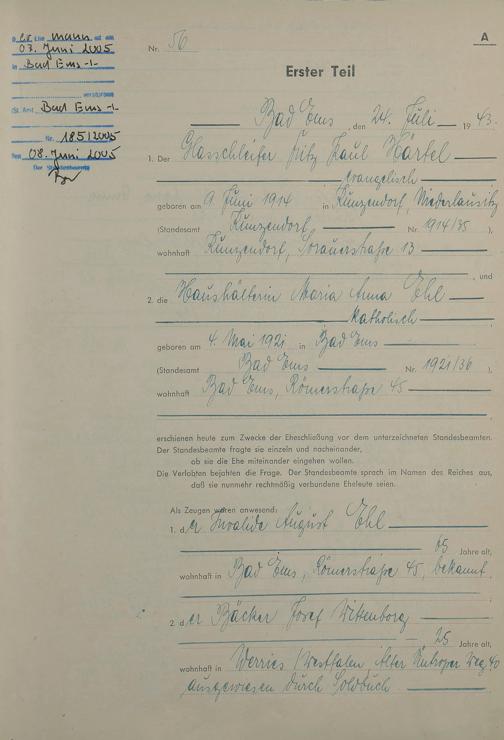 Der Ehemann ist am
03. Juni 2005
in Bad Ems -1-
verstorben
(St. Amt Bad Ems -1-
Nr. 185/2005
Den 08. Juni 2005
Der Standesbeamte
Nr. 56
A
Erster Teil
Bad Ems, den 24. Juli 1943.
1. Der Glasschleifer Fritz Paul Härtel
evangelisch
geboren am 9. Juni 1914 in Kunzendorf, Niederlausitz
(Standesamt Kunzendorf Nr. 1914/35),
wohnhaft Kunzendorf, Sorauerstraße 13
und
2. die Haushälterin Maria Anna Ehl
katholisch
geboren am 4. Mai 1921 in Bad Ems
(Standesamt Bad Ems Nr. 1921/36),
wohnhaft Bad Ems, Römerstraße 45
erschienen heute zum Zwecke der Eheschließung vor dem unterzeichneten Standesbeamten.
Der Standesbeamte fragte sie einzeln und nacheinander,
ob sie die Ehe miteinander eingehen wollen.
Die Verlobten bejahten die Frage. Der Standesbeamte sprach im Namen des Reiches aus,
daß sie nunmehr rechtmäßig verbundene Eheleute seien.
Als Zeugen waren anwesend:
1. der Invalide August Ehl
65 Jahre alt,
wohnhaft in Bad Ems, Römerstraße 45, bekannt
2. der Bäcker Josef Wittenborg
25 Jahre alt,
wohnhaft in Werries (Westfalen, Alter Uentroper Weg 40
ausgewiesen durch Soldbuch